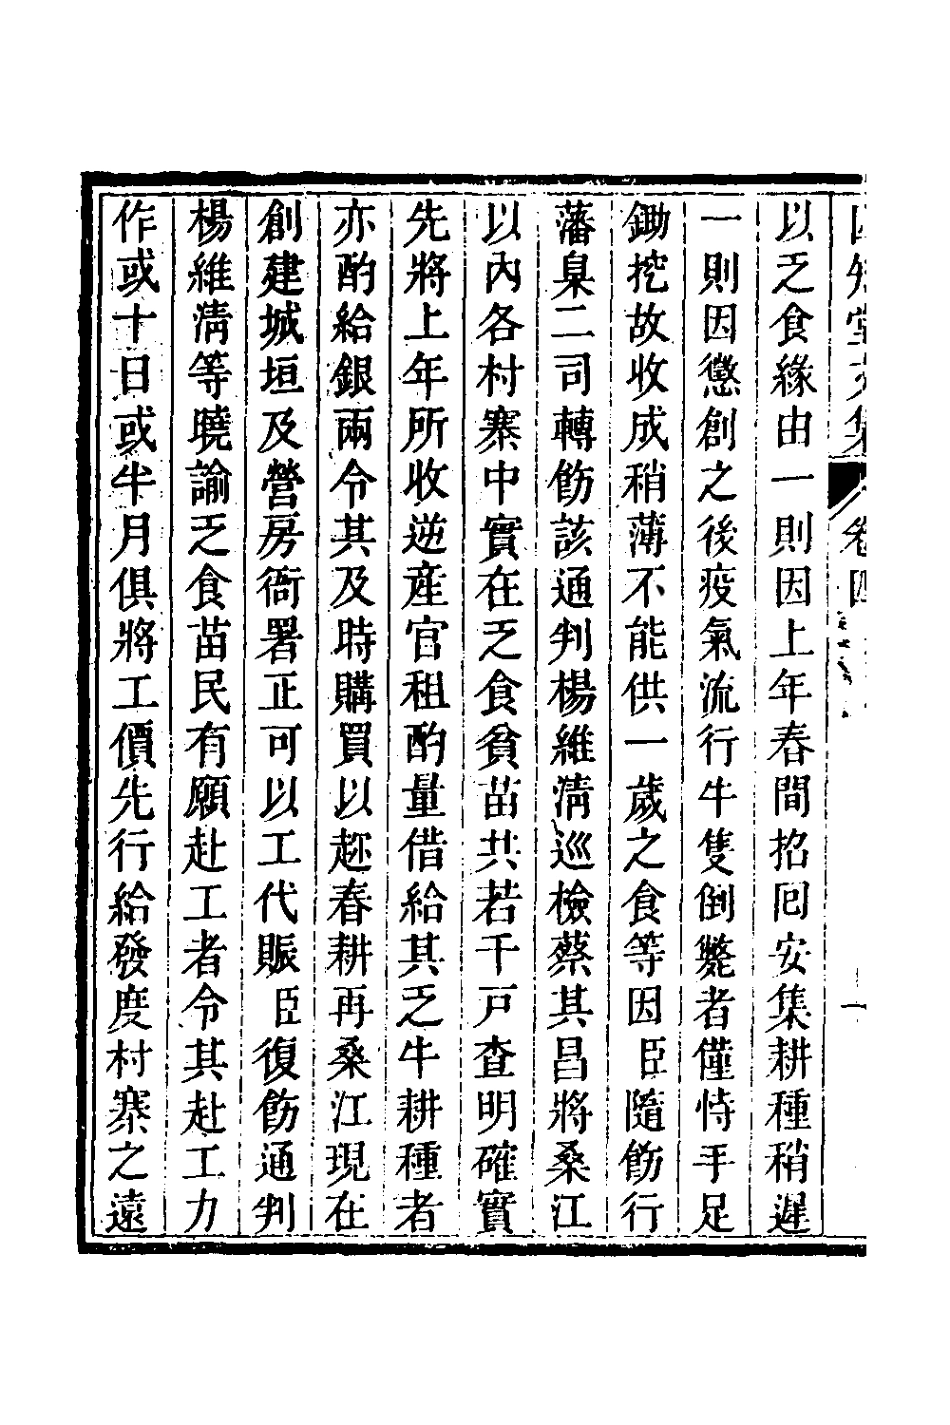 以乏食緣由一則因上年春間招囘安集耕種稍遲
一則因懲創之後疫氣流行牛隻倒斃者僅恃手足
鋤挖故收成稍薄不能供一歲之食等因臣隨飭行
藩臬二司轉飭該通判楊維淸巡檢蔡其昌將桑江
以內各村寨中實在乏食貧苗共若干戸查明確實
先將上年所收逆產官租酌量借給其乏牛耕種者
亦酌給銀兩令其及時購買以趂春耕再桑江現在
創建城垣及營房衙署正可以工代賑臣復飭通判
楊維淸等曉諭乏食苗民有願赴工者令其赴工力
作或十日或半月俱將工價先行給發度村寨之遠